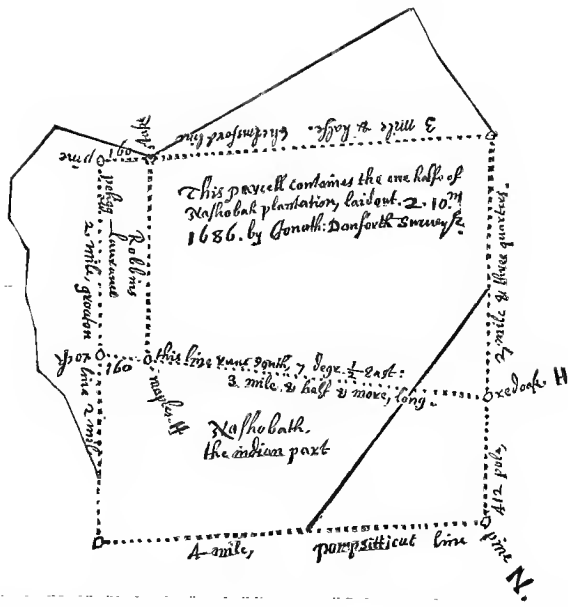 3 mile & halfe. Chelmsford line
pine
160
This parcell containes the one halfe of
Nashobah plantation, laid out. 2. 10m
1686. by Jonath: Danforth Surveyr.
Robbins
2 mile, groaton line 2 mile
2 mile & three quarters
160
this line runs South, 7 degr. ½ East:
3 mile. & half & more, long.
maple. H
redoak. H
Nashobath.
the indian part
412 pole,
4 mile,
pompsitticut line
pine
N.